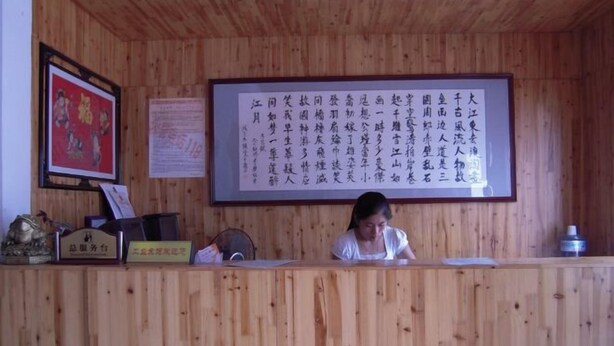 福
大江東去浪淘盡
千古風流人物故
壘西邊人道是三
國周郎赤壁亂石
穿空驚濤拍岸卷
起千堆雪江山如
画一時多少豪傑
遙想公瑾當年小
喬初嫁了雄姿英
發羽扇綸巾談笑
間檣櫓灰飛煙滅
故國神游多情應
笑我早生華髮人
間如夢一尊還酹
江月
总服务台